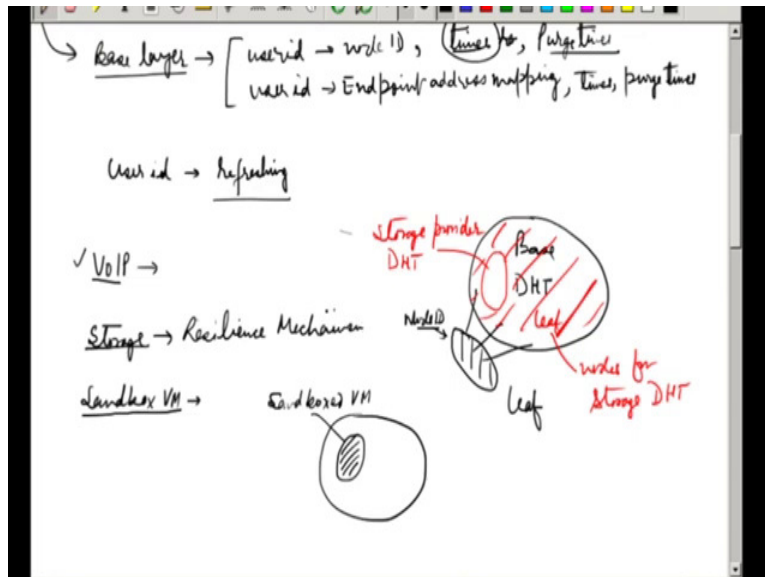 Base layer → userid → node ID, timer, Purge timer
userid → Endpoint address mapping, timer, purge timer
User id → Refreshing
Storage provider
DHT
Base
DHT
✓ VoIP →
leaf
Node ID
Storage → Resilience Mechanism
nodes for
Storage DHT
leaf
Sandbox VM →
Sandboxed VM